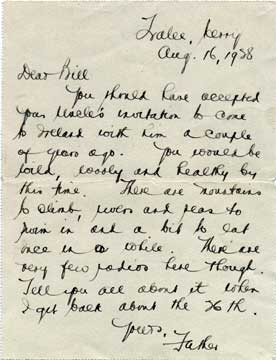 Tralee, Kerry
Aug. 16, 1938
Dear Bill
You should have accepted
your Uncle's invitation to come
to Ireland with him a couple
of years ago. You would be
wild, wooly and healthy by
this time. There are mountains
to climb, rivers and seas to
swim in and a bit to eat
once in a while. There are
very few radios here though.
Tell you all about it when
I get back about the 26th.
Yours,
Father